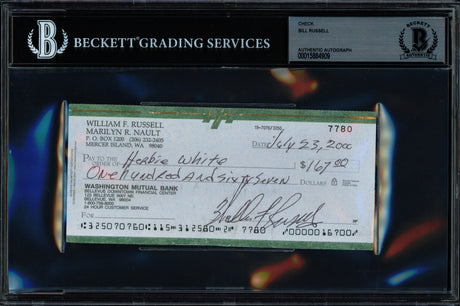 BECKETT GRADING SERVICES
CHECK
BILL RUSSELL
AUTHENTIC AUTOGRAPH
00015884909
BECKETT
AUTHENTIC
WILLIAM F. RUSSELL
MARILYN R. NAULT
P.O. BOX 1200 (206) 232-2405
MERCER ISLAND, WA 98040
19-7076/3250
7780
DATE July 23, 2000
PAY TO THE
ORDER OF Herbie White $167.00
One Hundred And Sixty Seven DOLLARS
WASHINGTON MUTUAL BANK
BELLEVUE DOWNTOWN FINANCIAL CENTER
BELLEVUE, WA 98004
1-800-756-8000
24 HOUR CUSTOMER SERVICE
FOR
William F Russell